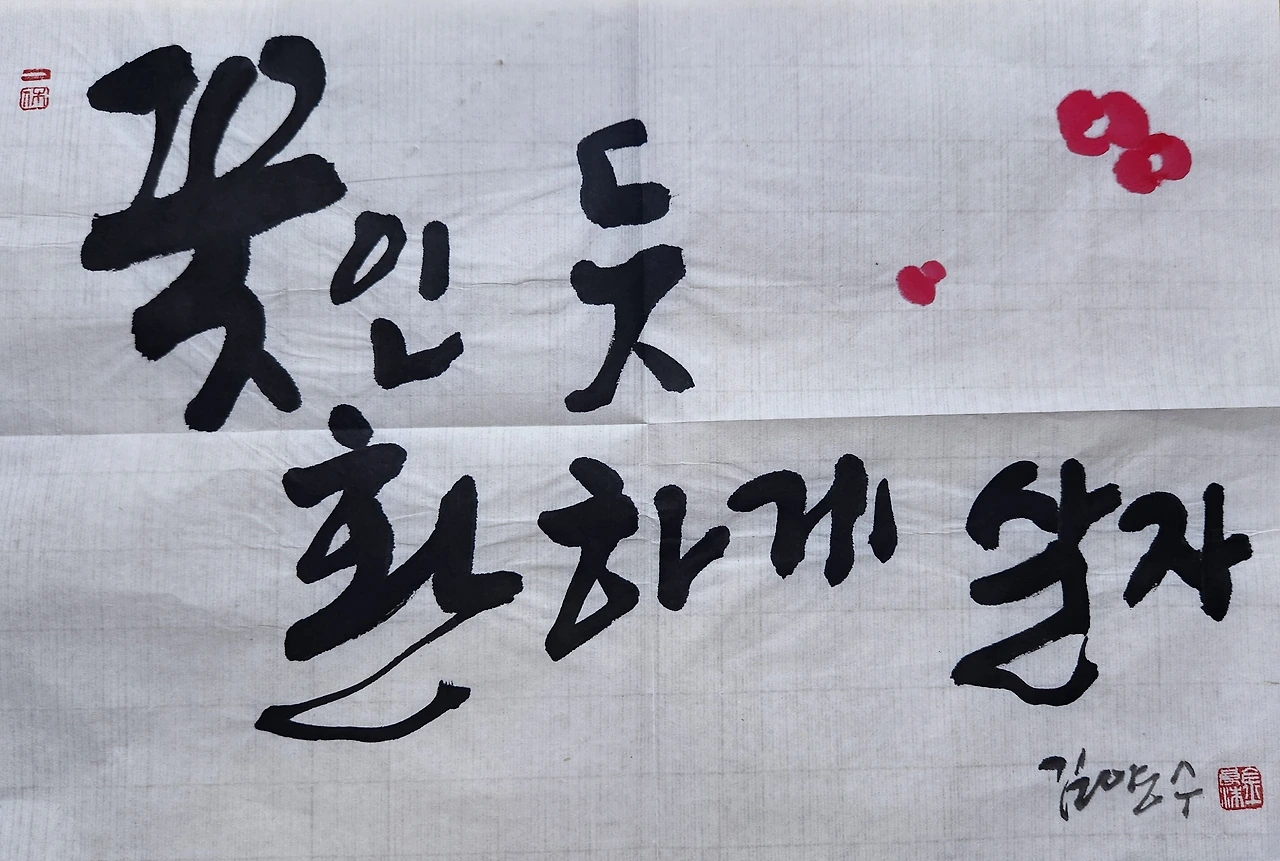 꽃인듯
환하게 살자
김양수